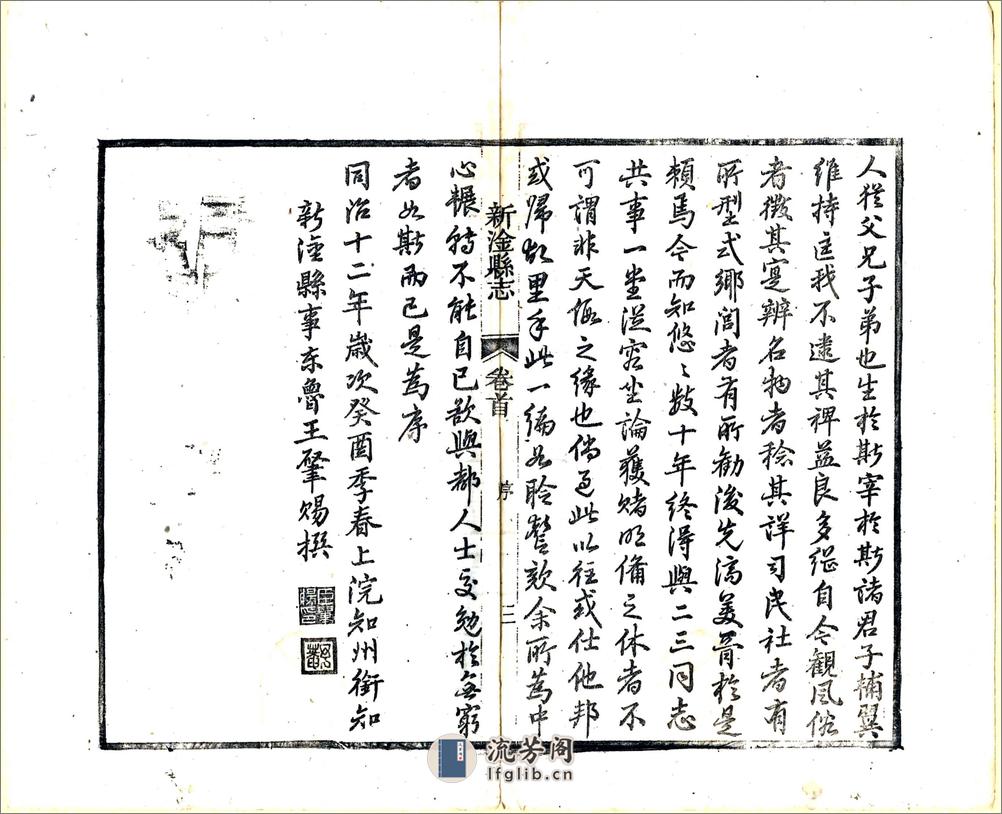 人猶父兄子弟也生於斯宰於斯諸君子輔翼
維持匡我不逮其裨益良多繼自今觀風俗
者徵其寔辨名物者稔其詳司民社者有
所型式鄉閭者有所勸後先濟美胥於是
賴焉今而知悠〻數十年終得與二三同志
共事一堂從容坐論獲睹明備之休者不
可謂非天假之緣也倘過此以往或仕他邦
或歸故里手此一編如聆謦欬余所為中
新淦縣志 卷首 序 三
心輾轉不能自已欲與都人士交勉於無窮
者如斯而已是為序
同治十二年歲次癸酉季春上浣知州銜知
新淦縣事東魯王肇賜撰
流芳阁
lfglib.cn